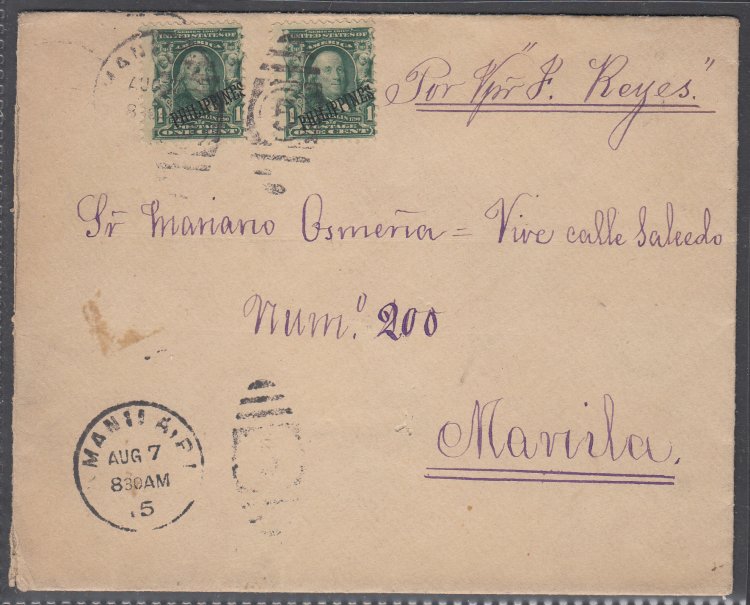 SERIES 1902
UNITED STATES OF
AMERICA
PHILIPPINES
1 1
POSTAGE
ONE CENT
SERIES 1902
UNITED STATES OF
AMERICA
PHILIPPINES
1 1
POSTAGE
ONE CENT
MAN
AU
830
"Por Vpr F. Reyes."
Sr Mariano Osmeña = Vive calle Salcedo
Num.º 200
Manila.
MANILA, P.I.
AUG 7
830AM
5